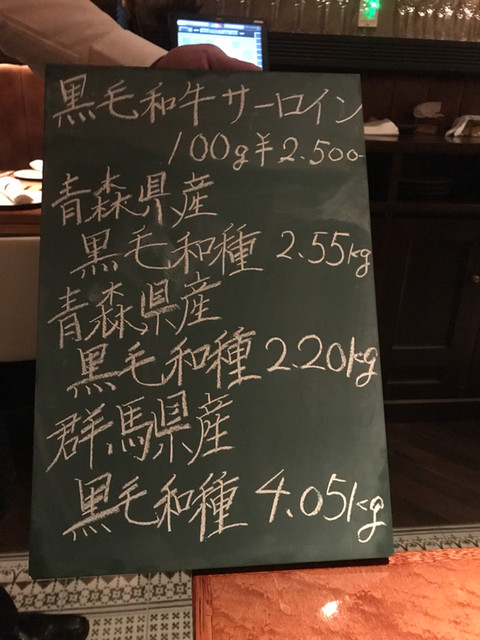 黒毛和牛サーロイン
100g¥2.500-
青森県産
黒毛和種 2.55kg
青森県産
黒毛和種 2.20kg
群馬県産
黒毛和種 4.05kg